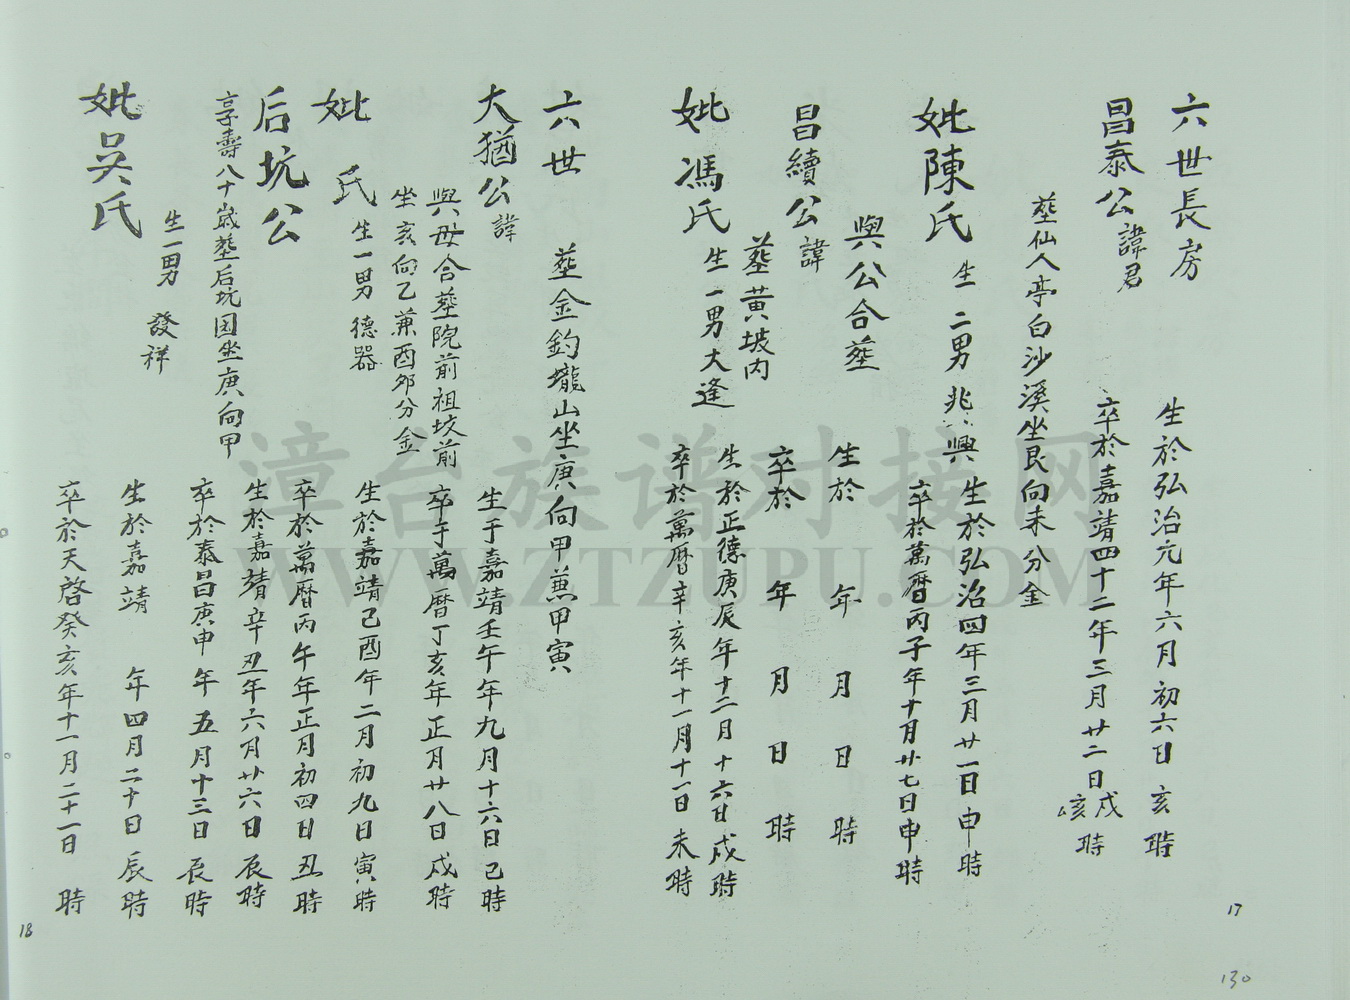 六世長房
生於弘治元年六月初六日亥時
昌泰公諱君
卒於嘉靖四十二年三月廿二日戍亥時
塟仙人亭白沙溪坐艮向未分金
妣陳氏
生二男兆興
生於弘治四年三月廿一日申時
卒於萬曆丙子年十月廿七日申時
與公合塟
昌續公諱
生於 年 月 日 時
塟黃坡內
卒於 年 月 日 時
妣馮氏生一男大逢
生於正德庚辰年十二月十六日戍時
卒於萬曆辛亥年十一月十一日未時
六世 塟金釣壠山坐庚向甲兼甲寅
大猶公諱
生于嘉靖壬午年九月十六日己時
與母合塟院前祖坟前
坐亥向乙兼酉卯分金
卒于萬曆丁亥年正月廿八日戍時
妣 氏生一男德器
生於嘉靖己酉年二月初九日寅時
卒於萬曆丙午年正月初四日丑時
后坑公
生於嘉靖辛丑年六月廿六日辰時
享壽八十歲塟后坑园坐庚向甲
卒於泰昌庚申年五月十三日辰時
生一男 發祥
妣吳氏
生於嘉靖 年四月二十日辰時
卒於天啓癸亥年十一月二十一日 時
17
18
130
漳台族谱对接网
WWW.ZTZUPU.COM